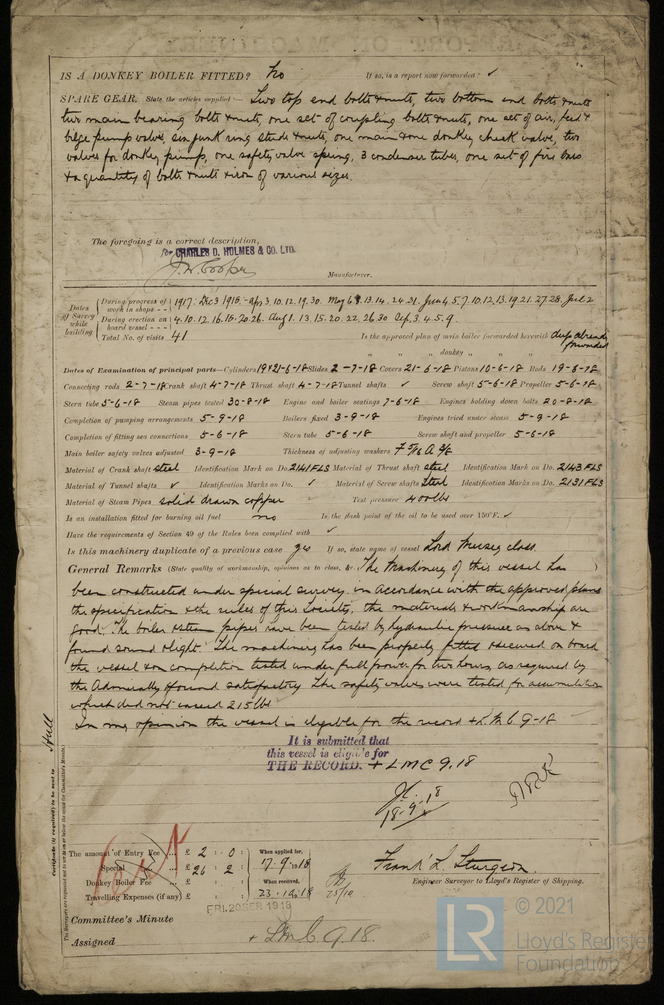 IS A DONKEY BOILER FITTED? No If so, is a report now forwarded? ✓
SPARE GEAR. State the articles supplied:— Two top end bolts & nuts, two bottom end bolts & nuts
two main bearing bolts & nuts, one set of coupling bolts & nuts, one set of air, feed &
bilge pump valves, six junk ring studs & nuts, one main & one donkey check valve, two
valves for donkey pump, one safety valve spring, 3 condenser tubes, one set of fire bars
& a quantity of bolts & nuts & iron of various sizes.
The foregoing is a correct description,
for CHARLES D. HOLMES & CO. LTD.
J. W. Cooper Manufacturer.
Dates of Survey while building
During progress of work in shops - - 1917. Dec 3 1918. Apr 3. 10. 12. 19. 30. May 6. 9. 13. 14. 24. 31. June 4. 5. 7. 10. 12. 13. 19. 21. 27. 28. July 2
During erection on board vessel - - - 4. 10. 12. 16. 18. 20. 26. Aug 1. 13. 15. 20. 22. 26. 30 Sep. 3. 4. 5. 9.
Total No. of visits 41 Is the approved plan of main boiler forwarded herewith already forwarded
" " " donkey " " "
Dates of Examination of principal parts—Cylinders 19 & 21-6-18 Slides 2-7-18 Covers 21-6-18 Pistons 10-6-18 Rods 19-6-18
Connecting rods 2-7-18 Crank shaft 4-7-18 Thrust shaft 4-7-18 Tunnel shafts ✓ Screw shaft 5-6-18 Propeller 5-6-18
Stern tube 5-6-18 Steam pipes tested 30-8-18 Engine and boiler seatings 7-6-18 Engines holding down bolts 20-8-18
Completion of pumping arrangements 5-9-18 Boilers fixed 3-9-18 Engines tried under steam 5-9-18
Completion of fitting sea connections 5-6-18 Stern tube 5-6-18 Screw shaft and propeller 5-6-18
Main boiler safety valves adjusted 3-9-18 Thickness of adjusting washers
Material of Crank shaft steel Identification Mark on Do. 2141 FLS Material of Thrust shaft steel Identification Mark on Do. 2143 FLS
Material of Tunnel shafts ✓ Identification Marks on Do. ✓ Material of Screw shafts Steel Identification Marks on Do. 2131 FLS
Material of Steam Pipes solid drawn copper Test pressure 400 lbs
Is an installation fitted for burning oil fuel no Is the flash point of the oil to be used over 150°F. ✓
Have the requirements of Section 49 of the Rules been complied with ✓
Is this machinery duplicate of a previous case yes If so, state name of vessel Lord Mersey class.
General Remarks (State quality of workmanship, opinions as to class, &c. The Machinery of this vessel has
been constructed under special survey in accordance with the approved plans
the specification & the rules of this Society, the materials & workmanship are
good. The boiler & steam pipes have been tested by hydraulic pressure as above &
found sound & tight. The machinery has been properly fitted & secured on board
the vessel & on completion tested under full power for two hours, as required by
the Admiralty & found satisfactory. The safety valves were tested for accumulation
which did not exceed 215 lbs
In my opinion the vessel is eligible for the record + L.M.C. 9-18
It is submitted that
this vessel is eligible for
THE RECORD. + LMC 9.18
18-9-18
Certificate (if required) to be sent to Hull
The Surveyors are requested not to write on or below the space for Committee's Minute.
The amount of Entry Fee ... £ 2 : 0 : When applied for,
Special ... £ 26 : 2 : 17-9-1918
Donkey Boiler Fee ... £ : : When received,
Travelling Expenses (if any) £ : : 23.10.18
Frank L. Sturgeon
Engineer Surveyor to Lloyd's Register of Shipping.
FRI. 20 SEP 1918
Committee's Minute
Assigned + L.M.C. 9.18.
LR © 2021
Lloyd's Register
Foundation